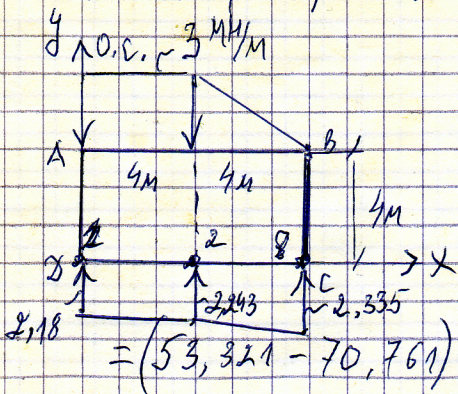 y о.с. ~ 3 МН/м
A B
4м 4м
4м
1 2
D C X
2,243 2,335
2,18
= (53,321 - 70,761)